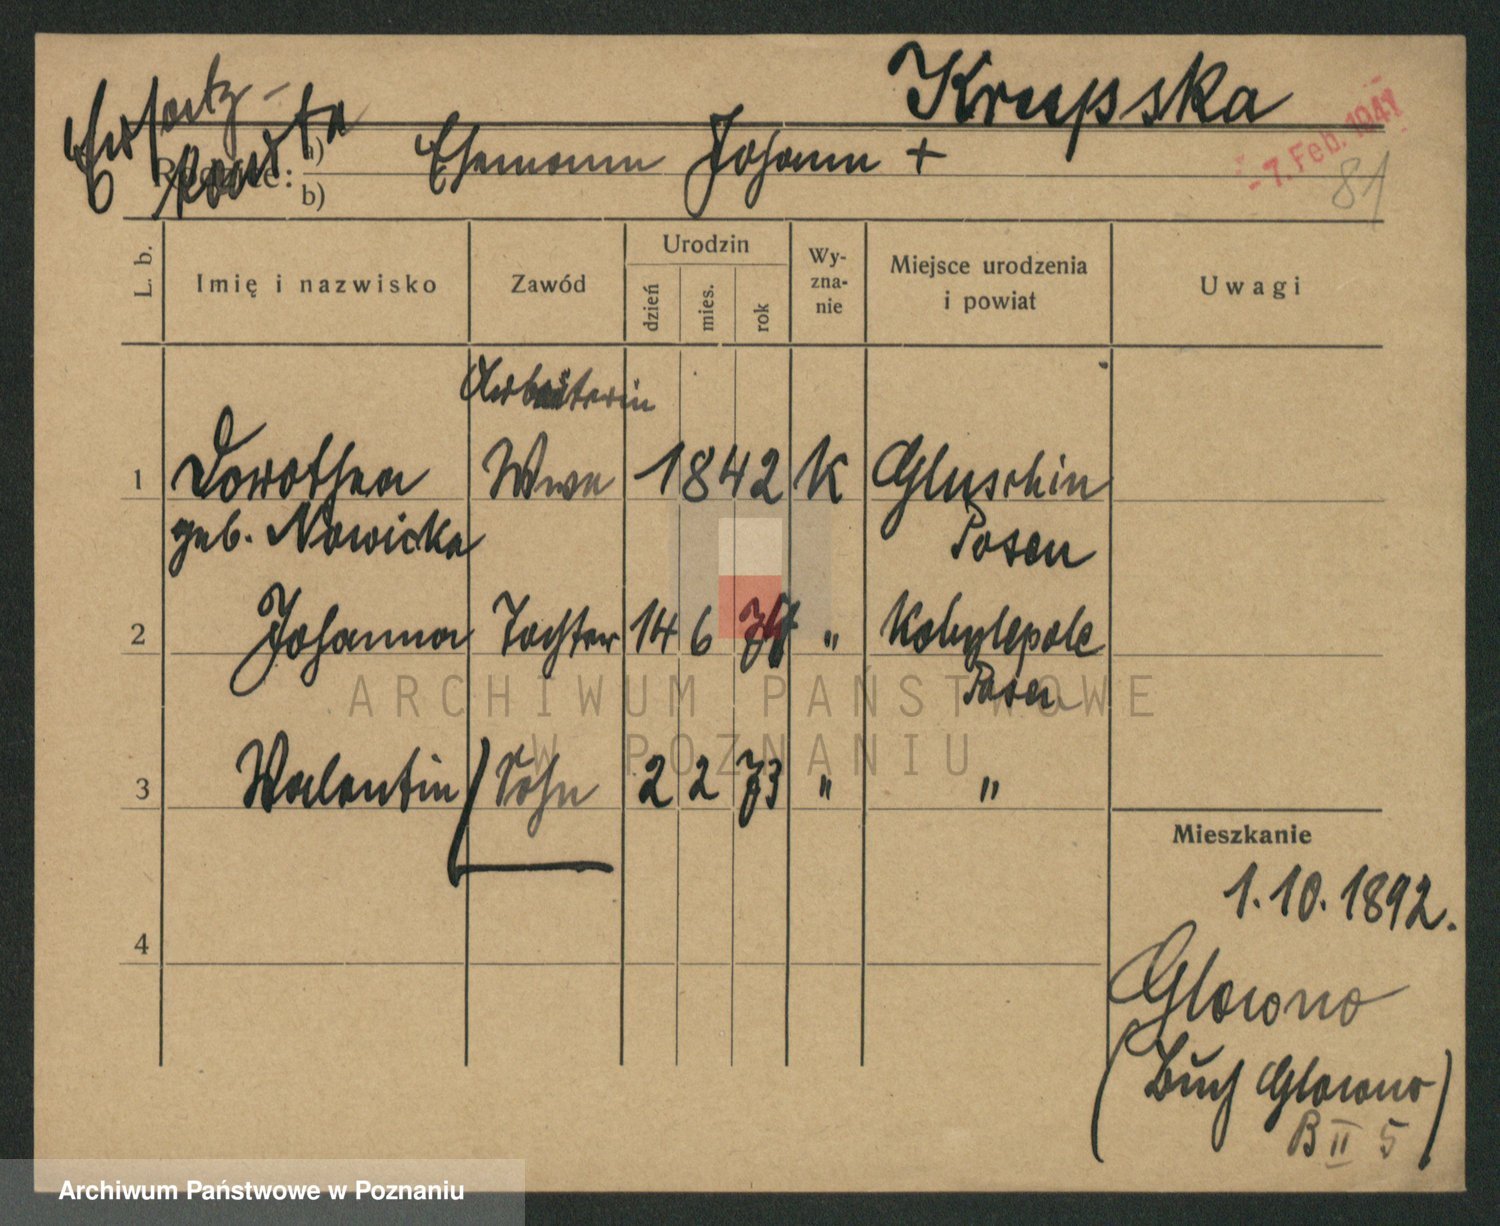 Krupska
Ersatz-
karte
- 7. Feb. 1941
81
a) Ehemann Johann +
b)
L. b.
Imię i nazwisko
Zawód
Urodzin
dzień
mies.
rok
Wy-
zna-
nie
Miejsce urodzenia
i powiat
Uwagi
Arbeiterin
1 Dorothea Wwa 1842 K Gluschin
geb. Nowicka Posen
2 Johanna Tochter 14 6 " Kobylepole
Posen
3 Walentin Sohn 2 2 73 " "
4
Mieszkanie
1.10.1892.
Glowno
(Buch Glowno)
B II 5
ARCHIWUM PAŃSTWOWE
W POZNANIU
Archiwum Państwowe w Poznaniu